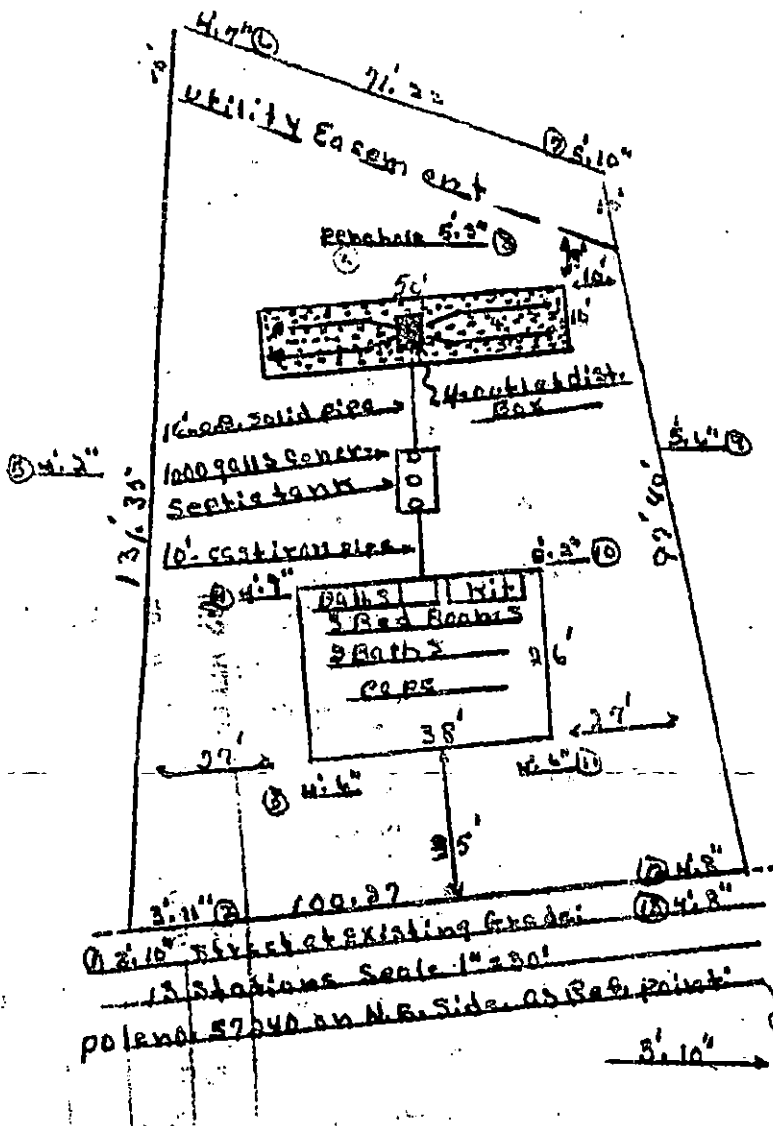 4'.7" 6
71'.22
Utility Easement
7 5'.10"
10'
Perchole 5'.3" 8
10'
50'
10'
4. outlet dist.
Box
solid pipe
1000 galls concr.
Septic tank
10'- cast iron pipe
5'.6" 9
4'.2"
131'.35'
10
4'.9"
Baths Kit
3 Bed Rooms
2 Baths
Cape
26'
38'
27'
27'
4'.6"
4'.6" 11
5'
3'.11" 2
100.27
12 4'.8"
1 2'.10" Street at existing Grade:
13 4'.8"
13 Stations Scale 1" = 30'
pole no. 57240 on N.E. Side, as Ref. point
3'.10"